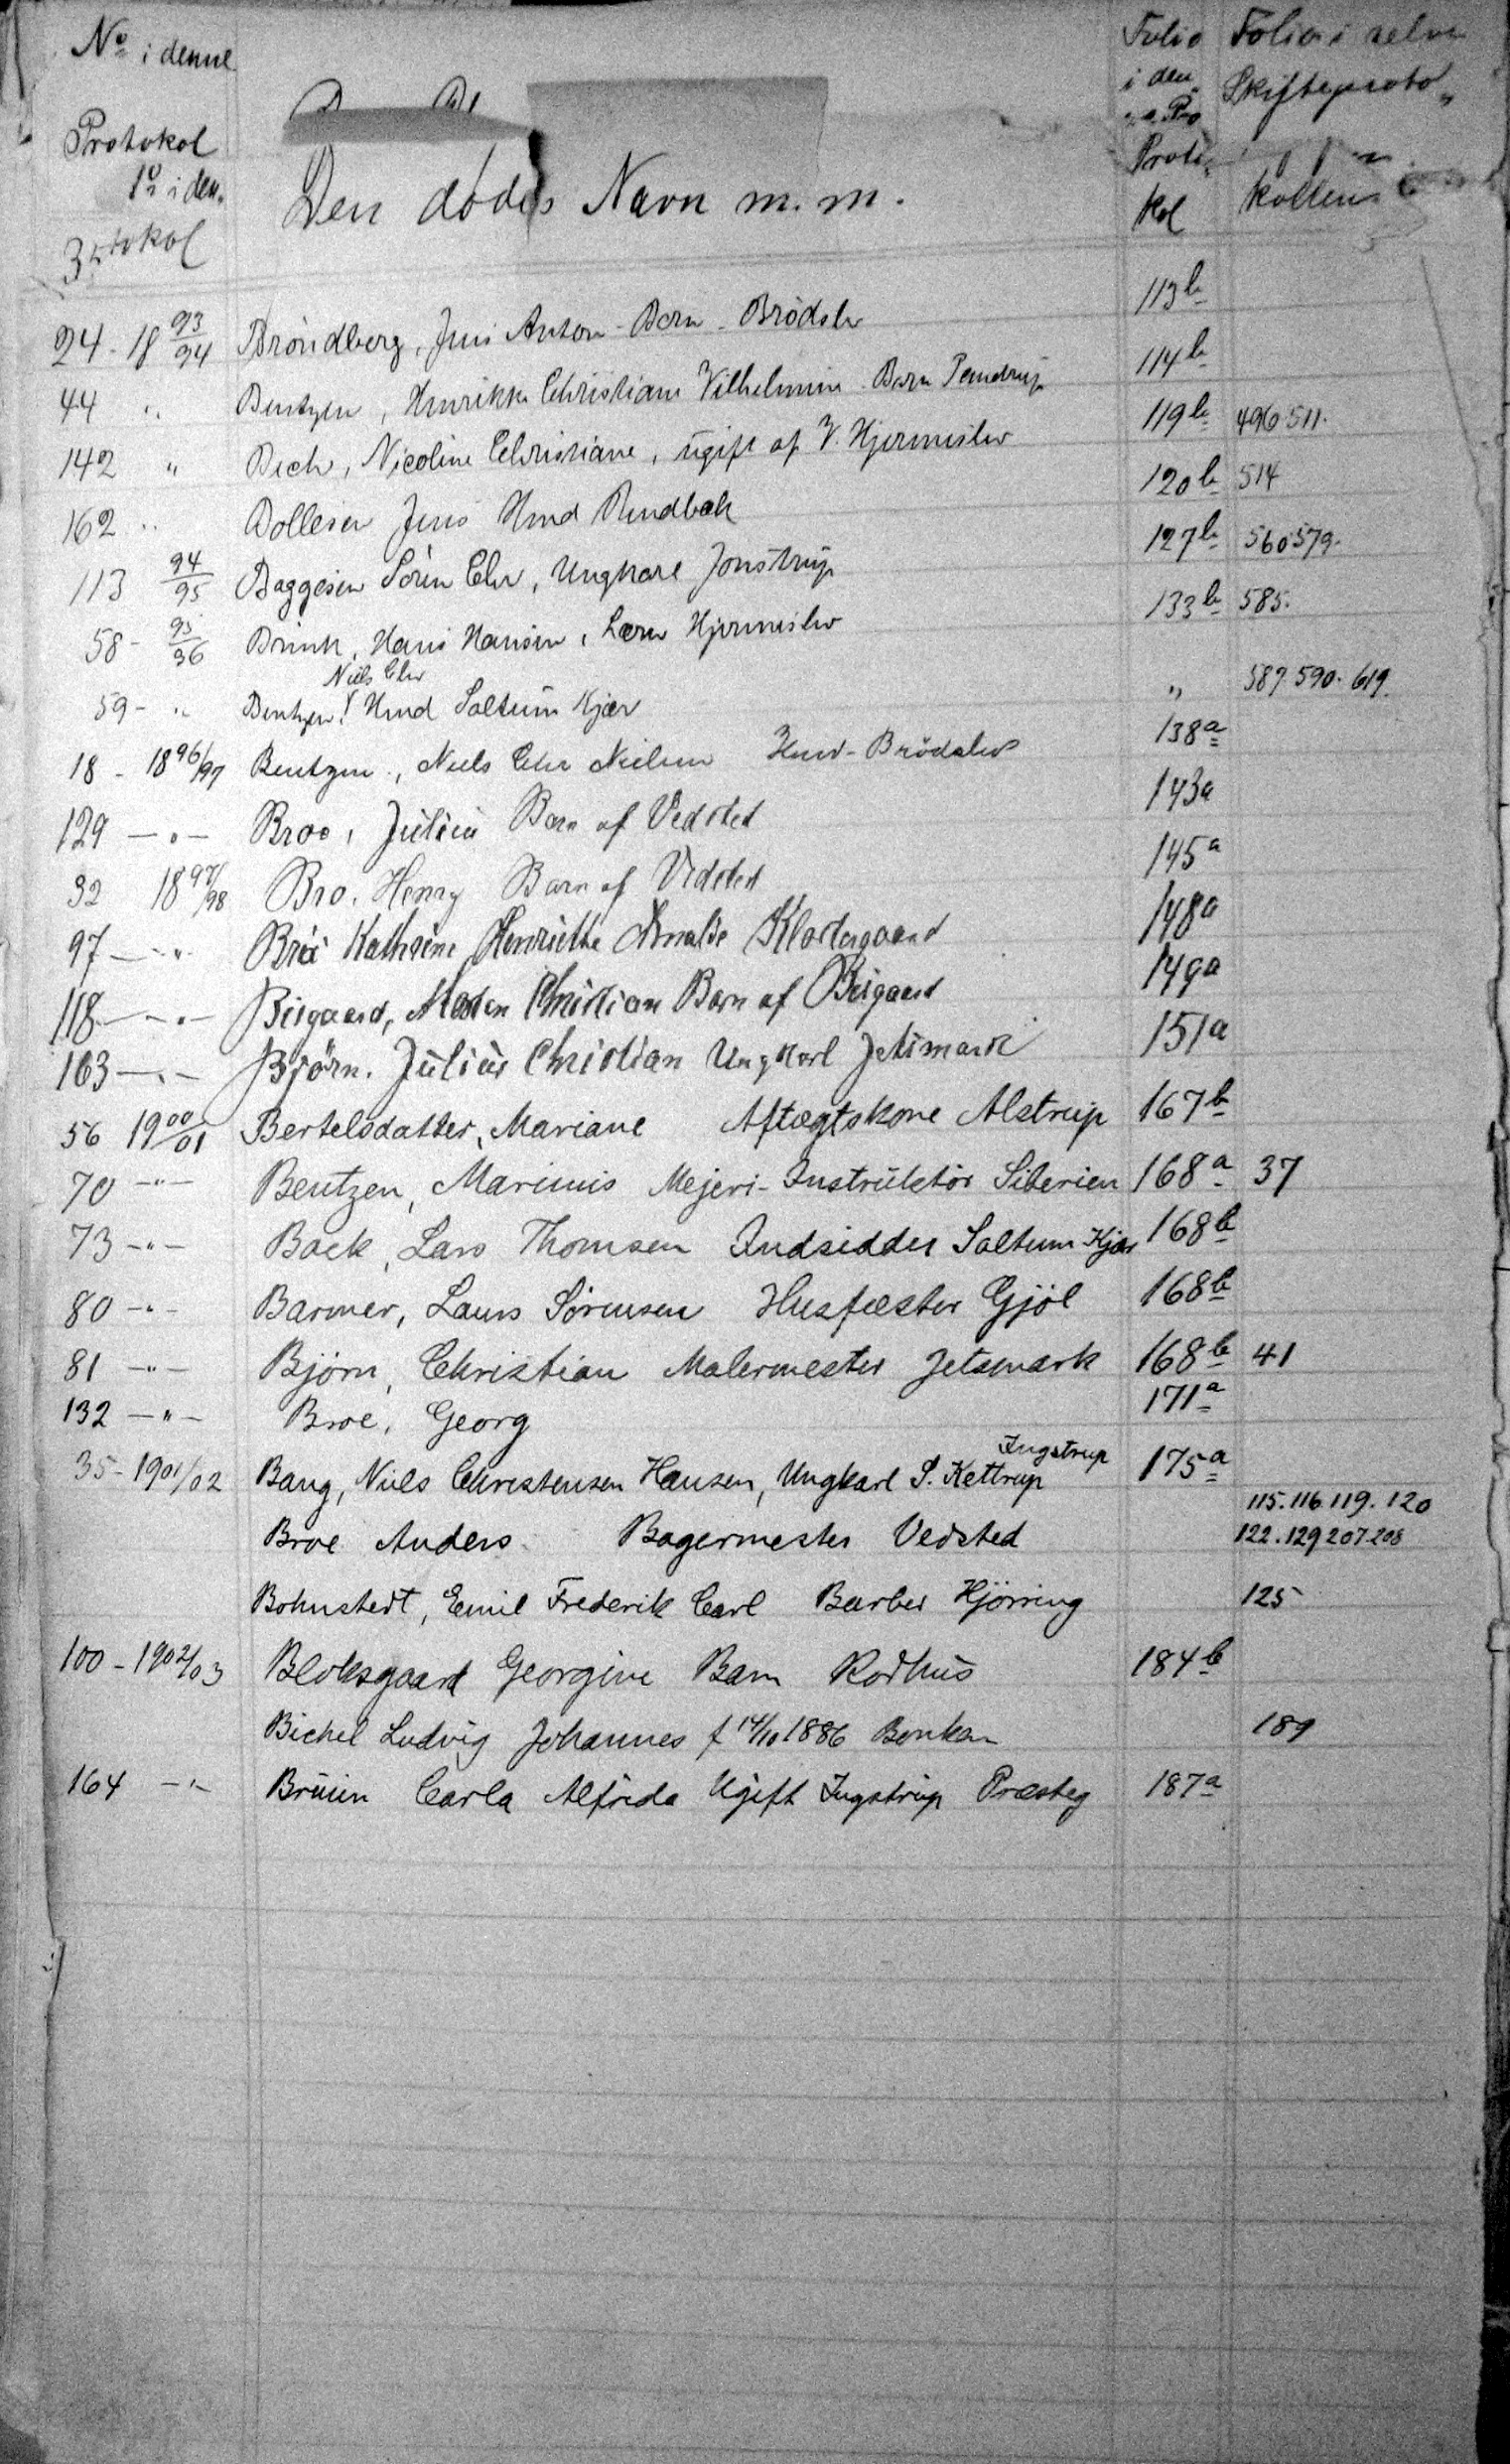 No i denne Protokol
Den dødes Navn m.m.
Folio i denne Protokol
Folio i selve Skifteprotokollen
24 - 18 93/94 Bröndberg, Jens Anton - Barn - Brödslev 113b
44 " Bentzen, Henrikke Christiane Vilhelmine Barn Pandrup 114b
142 " Bech, Nicoline Christiane, ugift af V. Hjermislev 119b 496.511.
162 " Bollesen Jens Hmd Rendbæk 120b 514
113 94/95 Baggesen Sören Chr, Ungkarl Jonstrup 127b 560.579.
58 - 95/96 Brink, Hans Hansen, Lærer Hjermislev 133b 585.
Niels Chr
59 - " Bentzen, Hmd Saltum Kjær " 587.590.619.
18 - 18 96/97 Bentzen, Niels Chr Nielsen Hmd - Brödslev 138a
129 — " — Broe, Julius Barn af Vedsted 143a
32 18 97/98 Bro, Henry Barn af Vedsted 145a
97 — " Kathrine Henriette Amalie Klostergaard 148a
118 — " — Birgaard, Morten Christian Barn af Birgaard 149a
163 — " — Björn, Julius Christian Ungkarl Jetsmark 151a
56 19 00/01 Bertelsdatter, Mariane Aftægtskone Alstrup 167b
70 — " — Bentzen, Marinus Mejeri-Instruktör Siberien 168a 37
73 — " — Back, Lars Thomsen Indsidder Saltum Kjær 168b
80 — " — Barmer, Laurs Sörensen Husfæster Gjöl 168b
81 — " — Björn, Christian Malermester Jetsmark 168b 41
132 — " — Broe, Georg 171a
Ingstrup
35 - 1901/02 Bang, Niels Christensen Hansen, Ungkarl S. Kettrup 175a
115.116.119.120
Broe Anders Bagermester Vedsted 122.129 207.208
Bohnstedt, Emil Frederik Carl Barber Hjörring 125
100 - 1902/03 Bloksgaard Georgine Barn Rödhus 184b
Bichel Ludvig Johannes f 14/10 1886 189
164 — " — Brüün Carla Alfrida Ugift Ingstrup Præsteg 187a